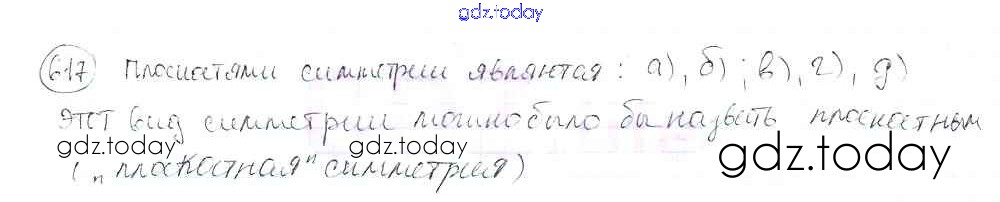 gdz.today
617 Плоскостями симметрии являются: а), б); в), г), д)
Этот вид симметрии можно было бы назвать плоскостным
gdz.today gdz.today gdz.today
( „плоскостная" симметрия)